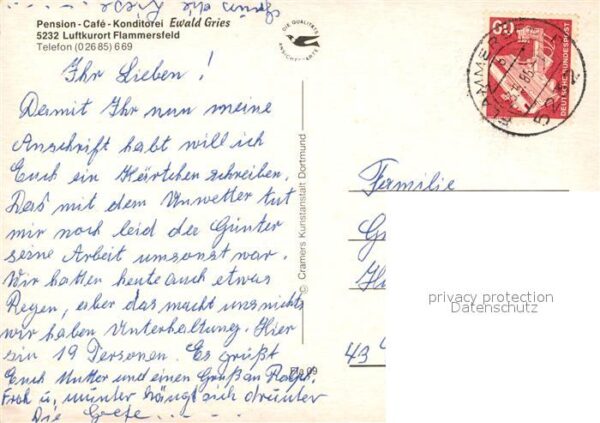 Pension - Café - Konditorei Ewald Gries
5232 Luftkurort Flammersfeld
Telefon (0 26 85) 6 69
Ihr Lieben!
Damit Ihr nun meine
Anschrift habt will ich
Euch ein Kärtchen schreiben.
Das mit dem Unwetter tut
mir noch leid der Günter
seine Arbeit umsonst war.
Wir hatten heute auch etwas
Regen, aber das macht uns nichts
wir haben Unterhaltung. Hier
sin 19 Personen. Es grüßt
Euch Mutter und einen Gruß an Ralph.
Froh u, munter hängt sich drunter
Die Grete - - -
DIE QUALITÄTS
ANSICHTSKARTE
© Cramers Kunstanstalt Dortmund
Fla 99
60
DEUTSCHE BUNDESPOST
5232
Familie
G
Hu
43
privacy protection
Datenschutz